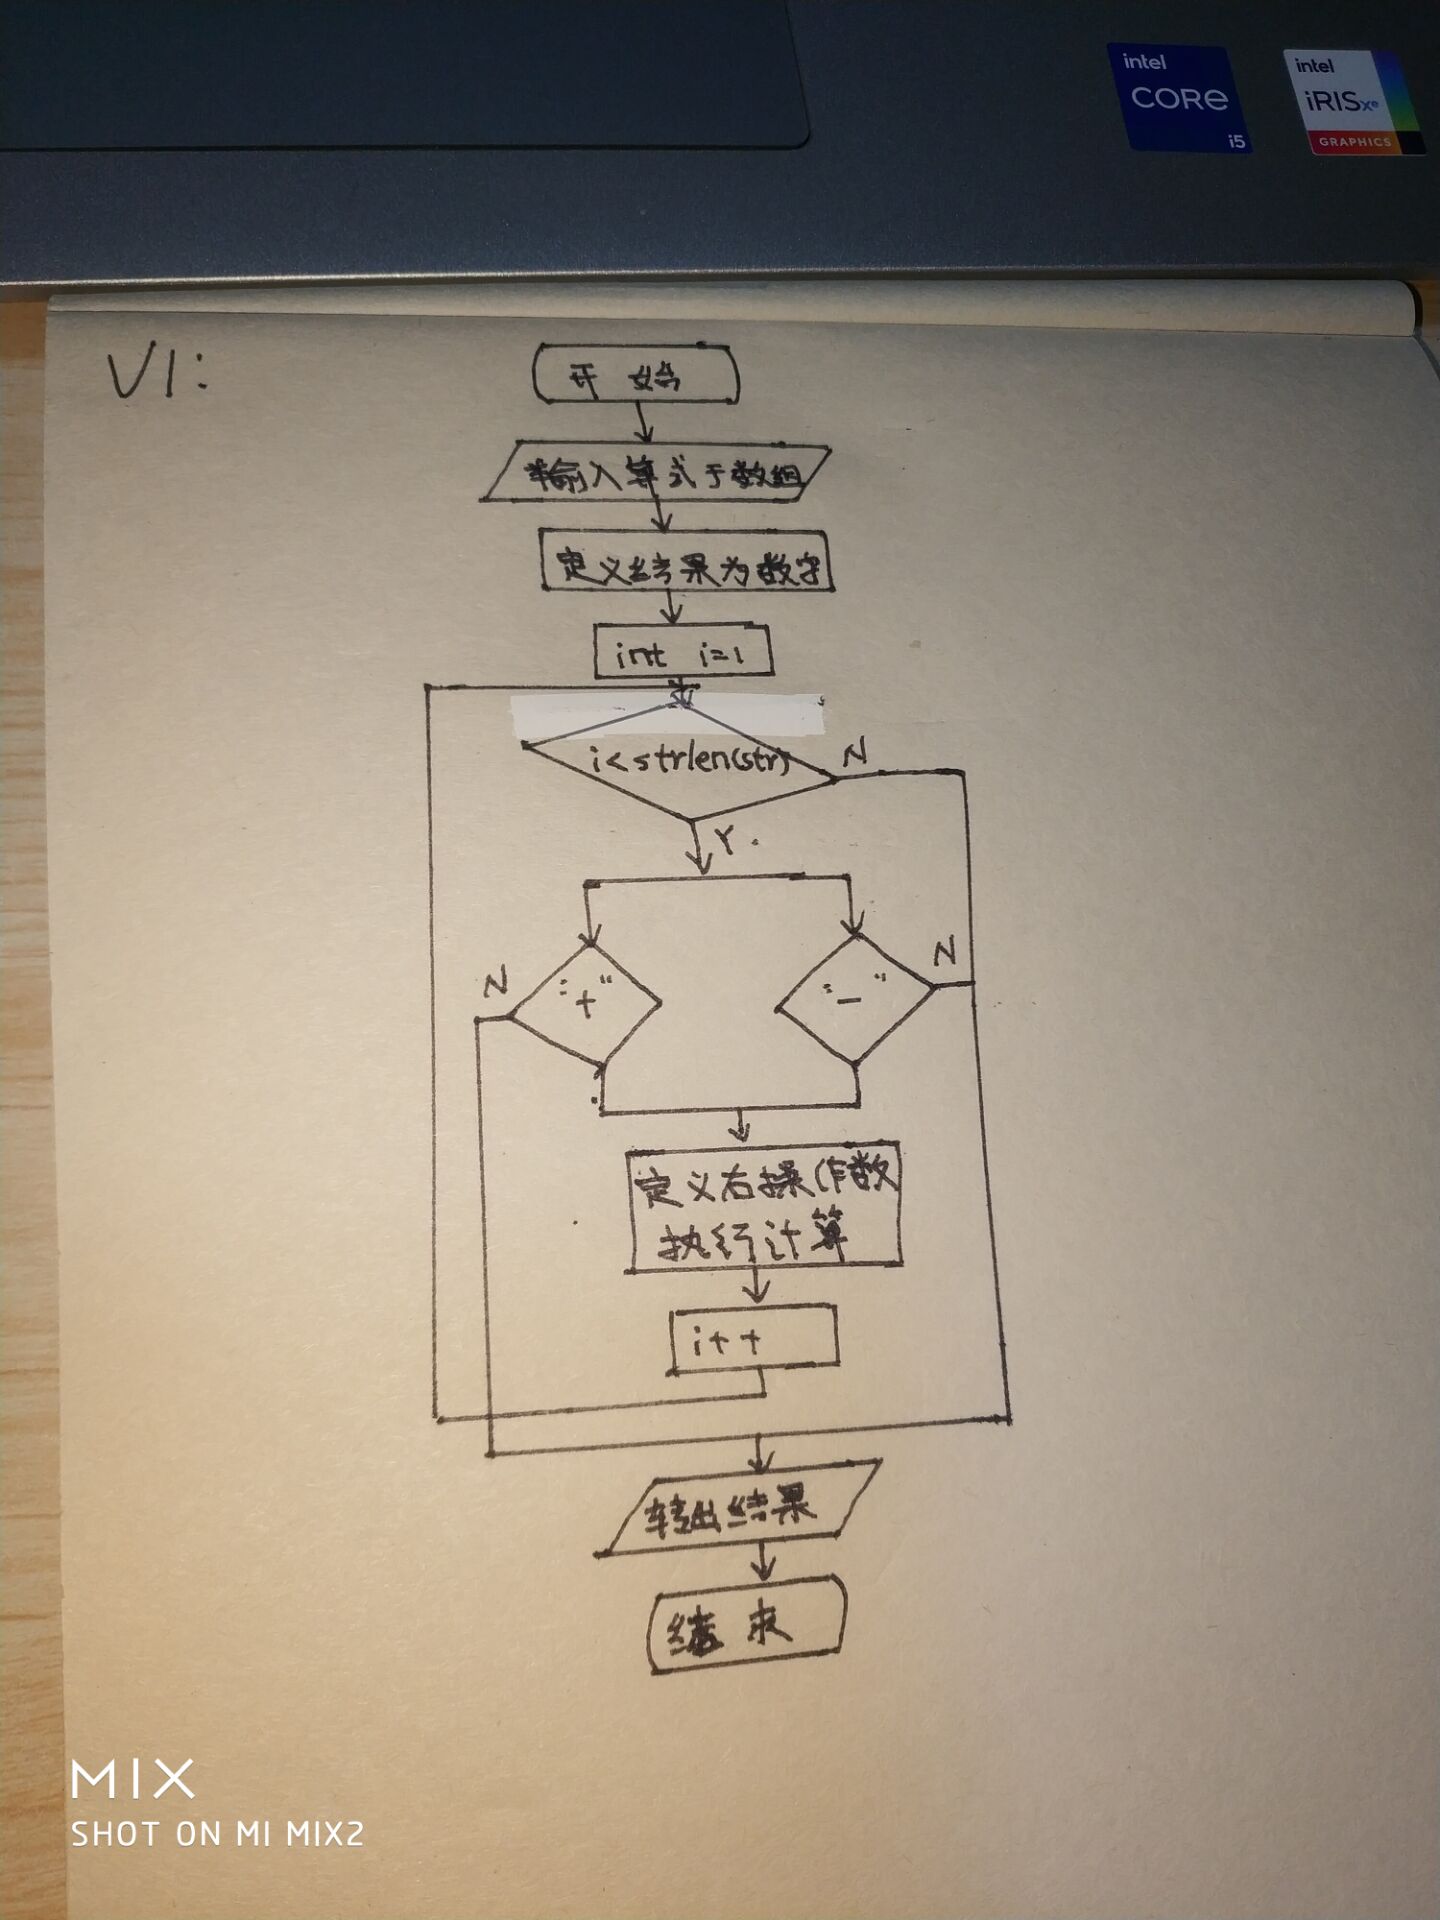 intel
CORE
i5
intel
iRISxe
GRAPHICS
V1:
开始
输入算式于数组
定义结果为数字
int i=1
i<strlen(str)
N
Y.
N
"+"
"-"
N
定义右操作数
执行计算
i++
转出结果
结束
MIX
SHOT ON MI MIX2